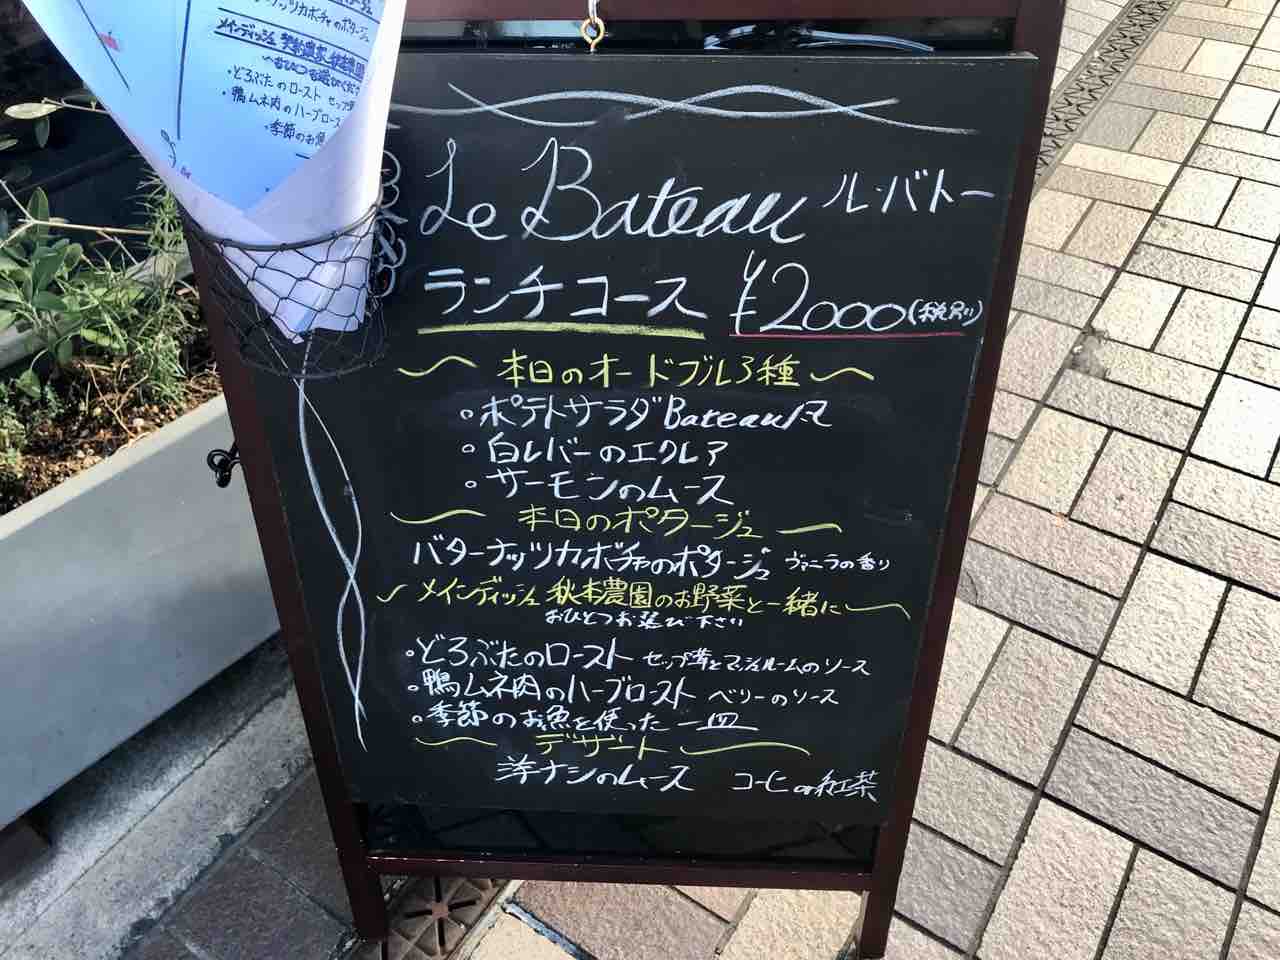 ナッツカボチャのポタージュ
メインディッシュ
・どろぶたのロースト セップ
・鴨ムネ肉のハーブロース
・季節のお魚
Le Bateau ル・バトー
ランチコース ¥2000(お税別)
本日のオードブル3種
。ポテトサラダBateau風
。白レバーのエクレア
。サーモンのムース
本日のポタージュ
バターナッツカボチャのポタージュ ヴァニラの香り
メインディッシュ 秋本農園のお野菜と一緒に
おひとつお選び下さい
・どろぶたのロースト セップ茸とマッシュルームのソース
・鴨ムネ肉のハーブロースト ベリーのソース
・季節のお魚を使った一皿
デザート
洋ナシのムース コーヒーor紅茶